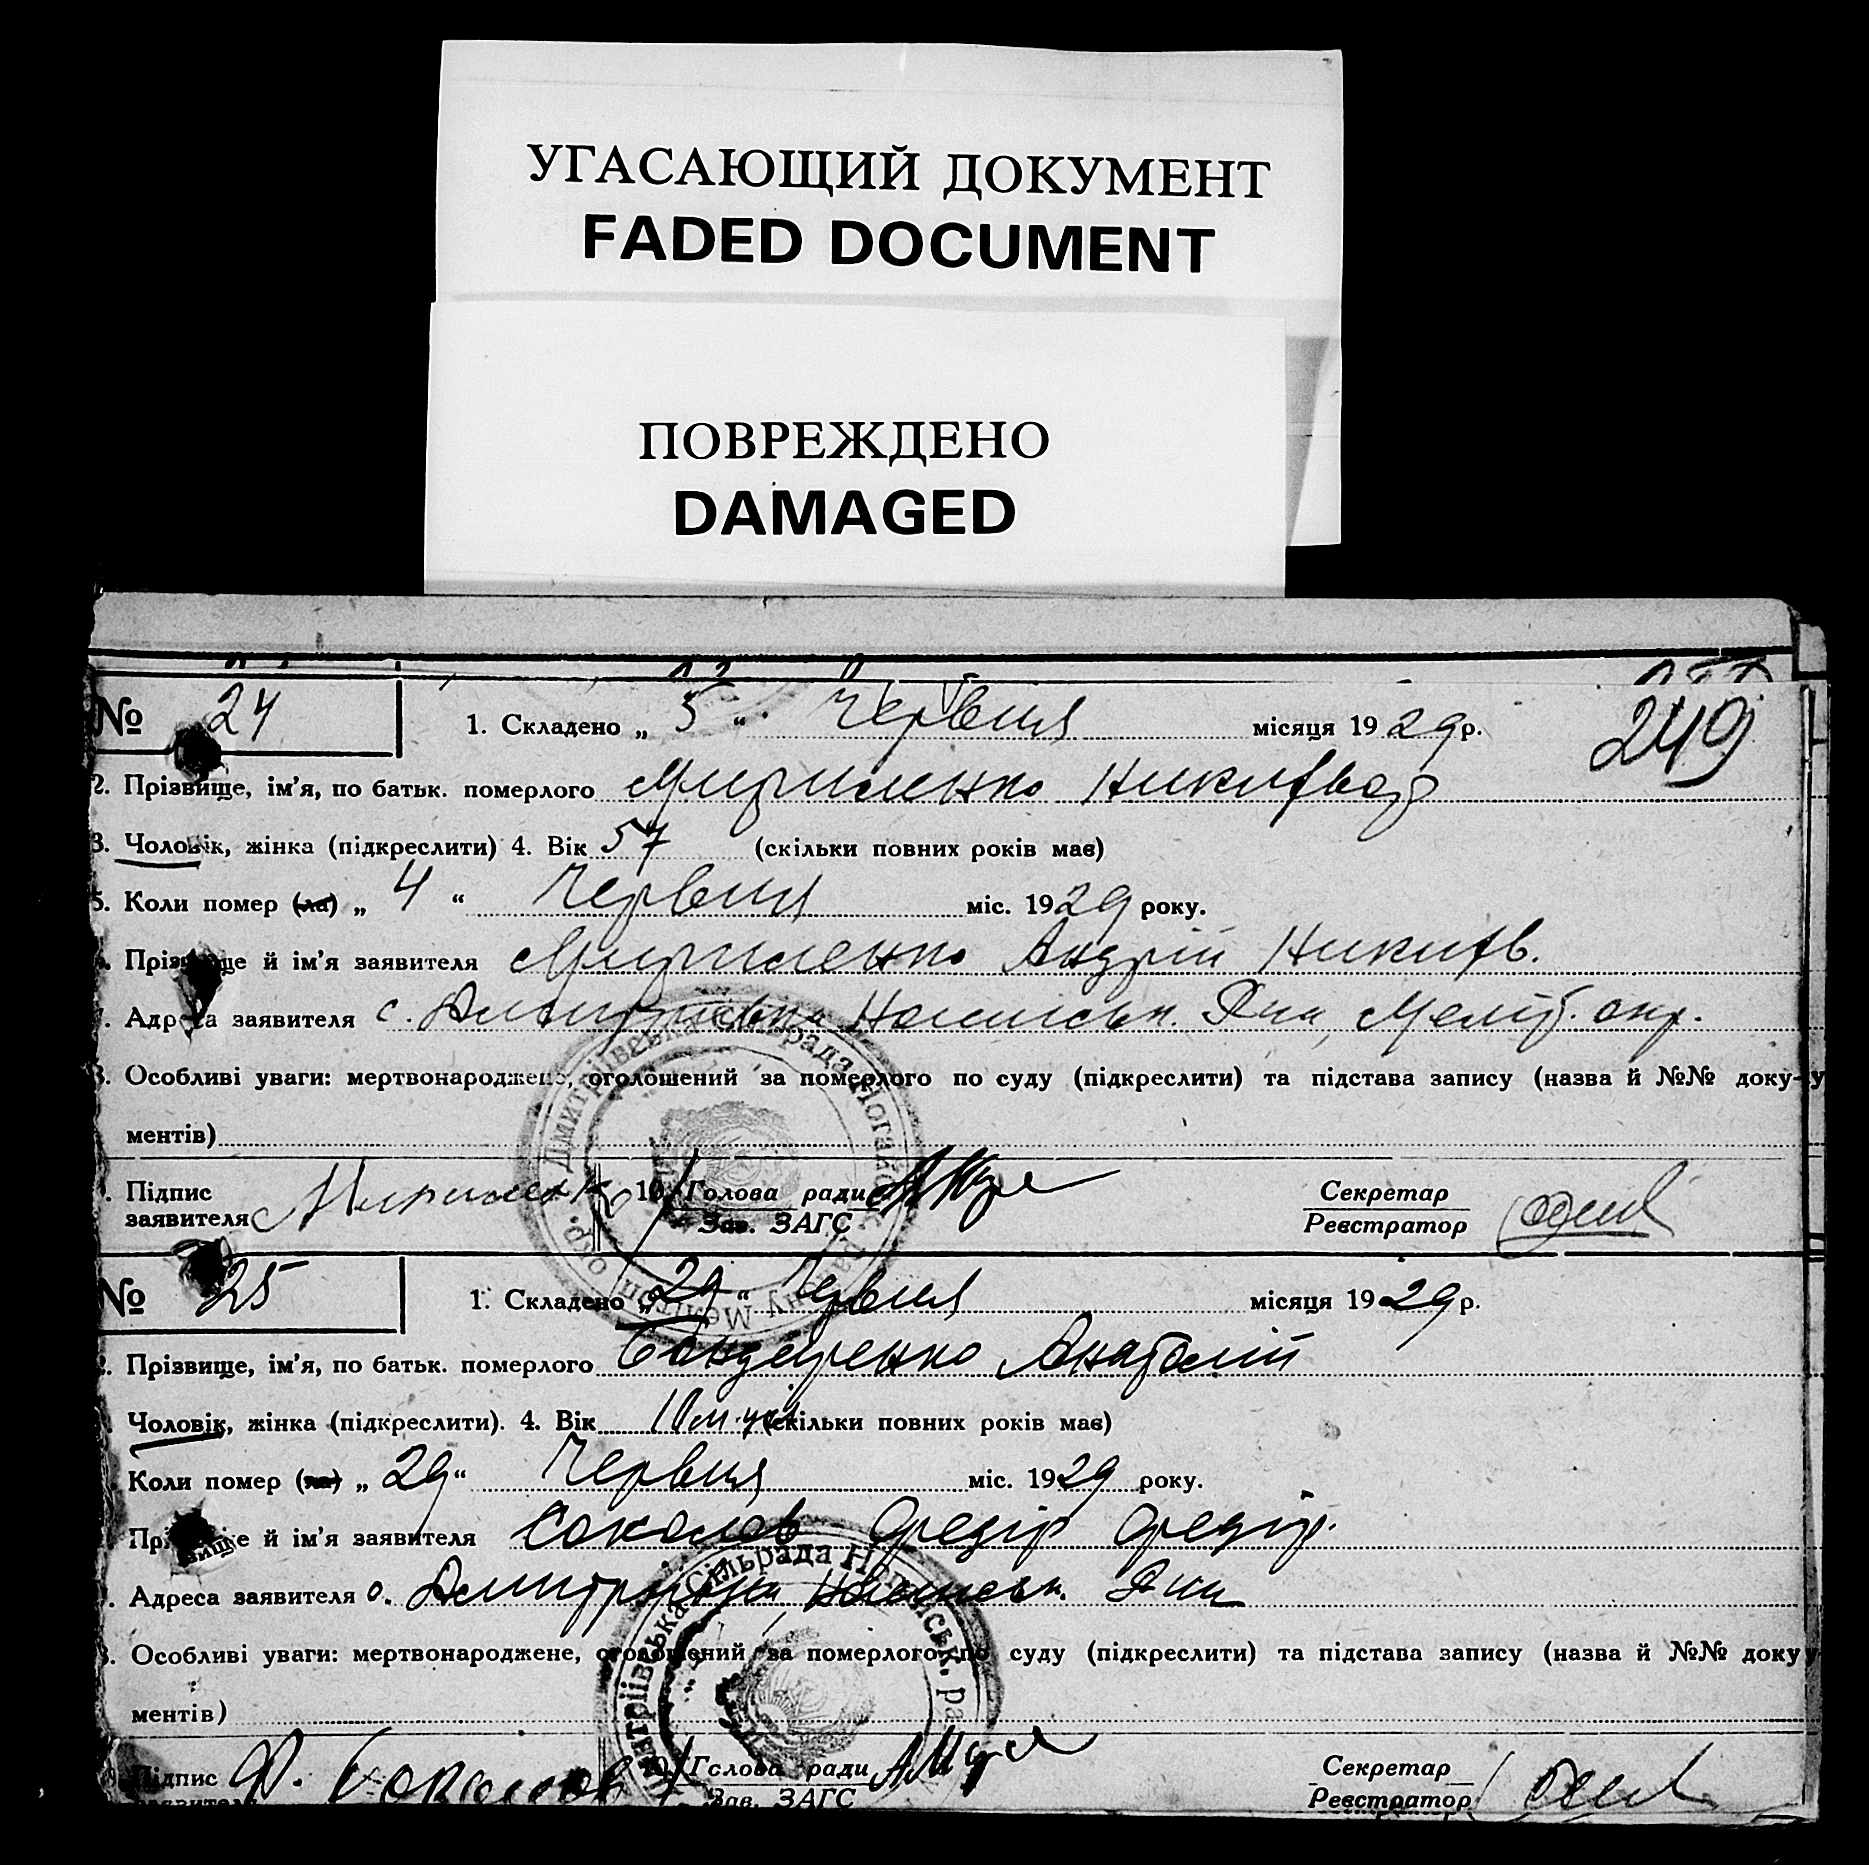 УГАСАЮЩИЙ ДОКУМЕНТ
FADED DOCUMENT
ПОВРЕЖДЕНО
DAMAGED
№ 24 1. Складено „ 5 “ Червня місяця 1929 р. 249
2. Прізвище, ім'я, по батьк. померлого
3. Чоловік, жінка (підкреслити) 4. Вік 57 (скільки повних років має)
5. Коли помер (ла) „ 4 “ Червня міс. 1929 року.
Прізвище й ім'я заявителя Андрій Никитів.
Адреса заявителя с. Дмитрівка Ногайськ. Р-ну, Меліт. окр.
Особливі уваги: мертвонароджено, оголошений за померлого по суду (підкреслити) та підстава запису (назва й №№ доку-
ментів)
Підпис
заявителя
10. Голова ради
Зав. ЗАГС
Секретар
Реєстратор
Дмитріївська Сільрада Ногайськ. району Мелітоп. окр.
№ 25 1. Складено „ 29 “ Червня місяця 1929 р.
Прізвище, ім'я, по батьк. померлого Бондаренко Анатолій
Чоловік, жінка (підкреслити). 4. Вік 10 м. (скільки повних років має)
Коли помер (ла) „ 29 “ Червня міс. 1929 року.
Прізвище й ім'я заявителя Соколов Федір Федір.
Адреса заявителя с. Дмитрівка, Ногайськ. Р-ну
Особливі уваги: мертвонароджене, оголошений за померлого по суду (підкреслити) та підстава запису (назва й №№ доку
ментів)
Підпис
заявителя
Ф. Соколов
Голова ради
Зав. ЗАГС
Секретар
Реєстратор
Дмитріївська Сільрада Ногайськ. ра